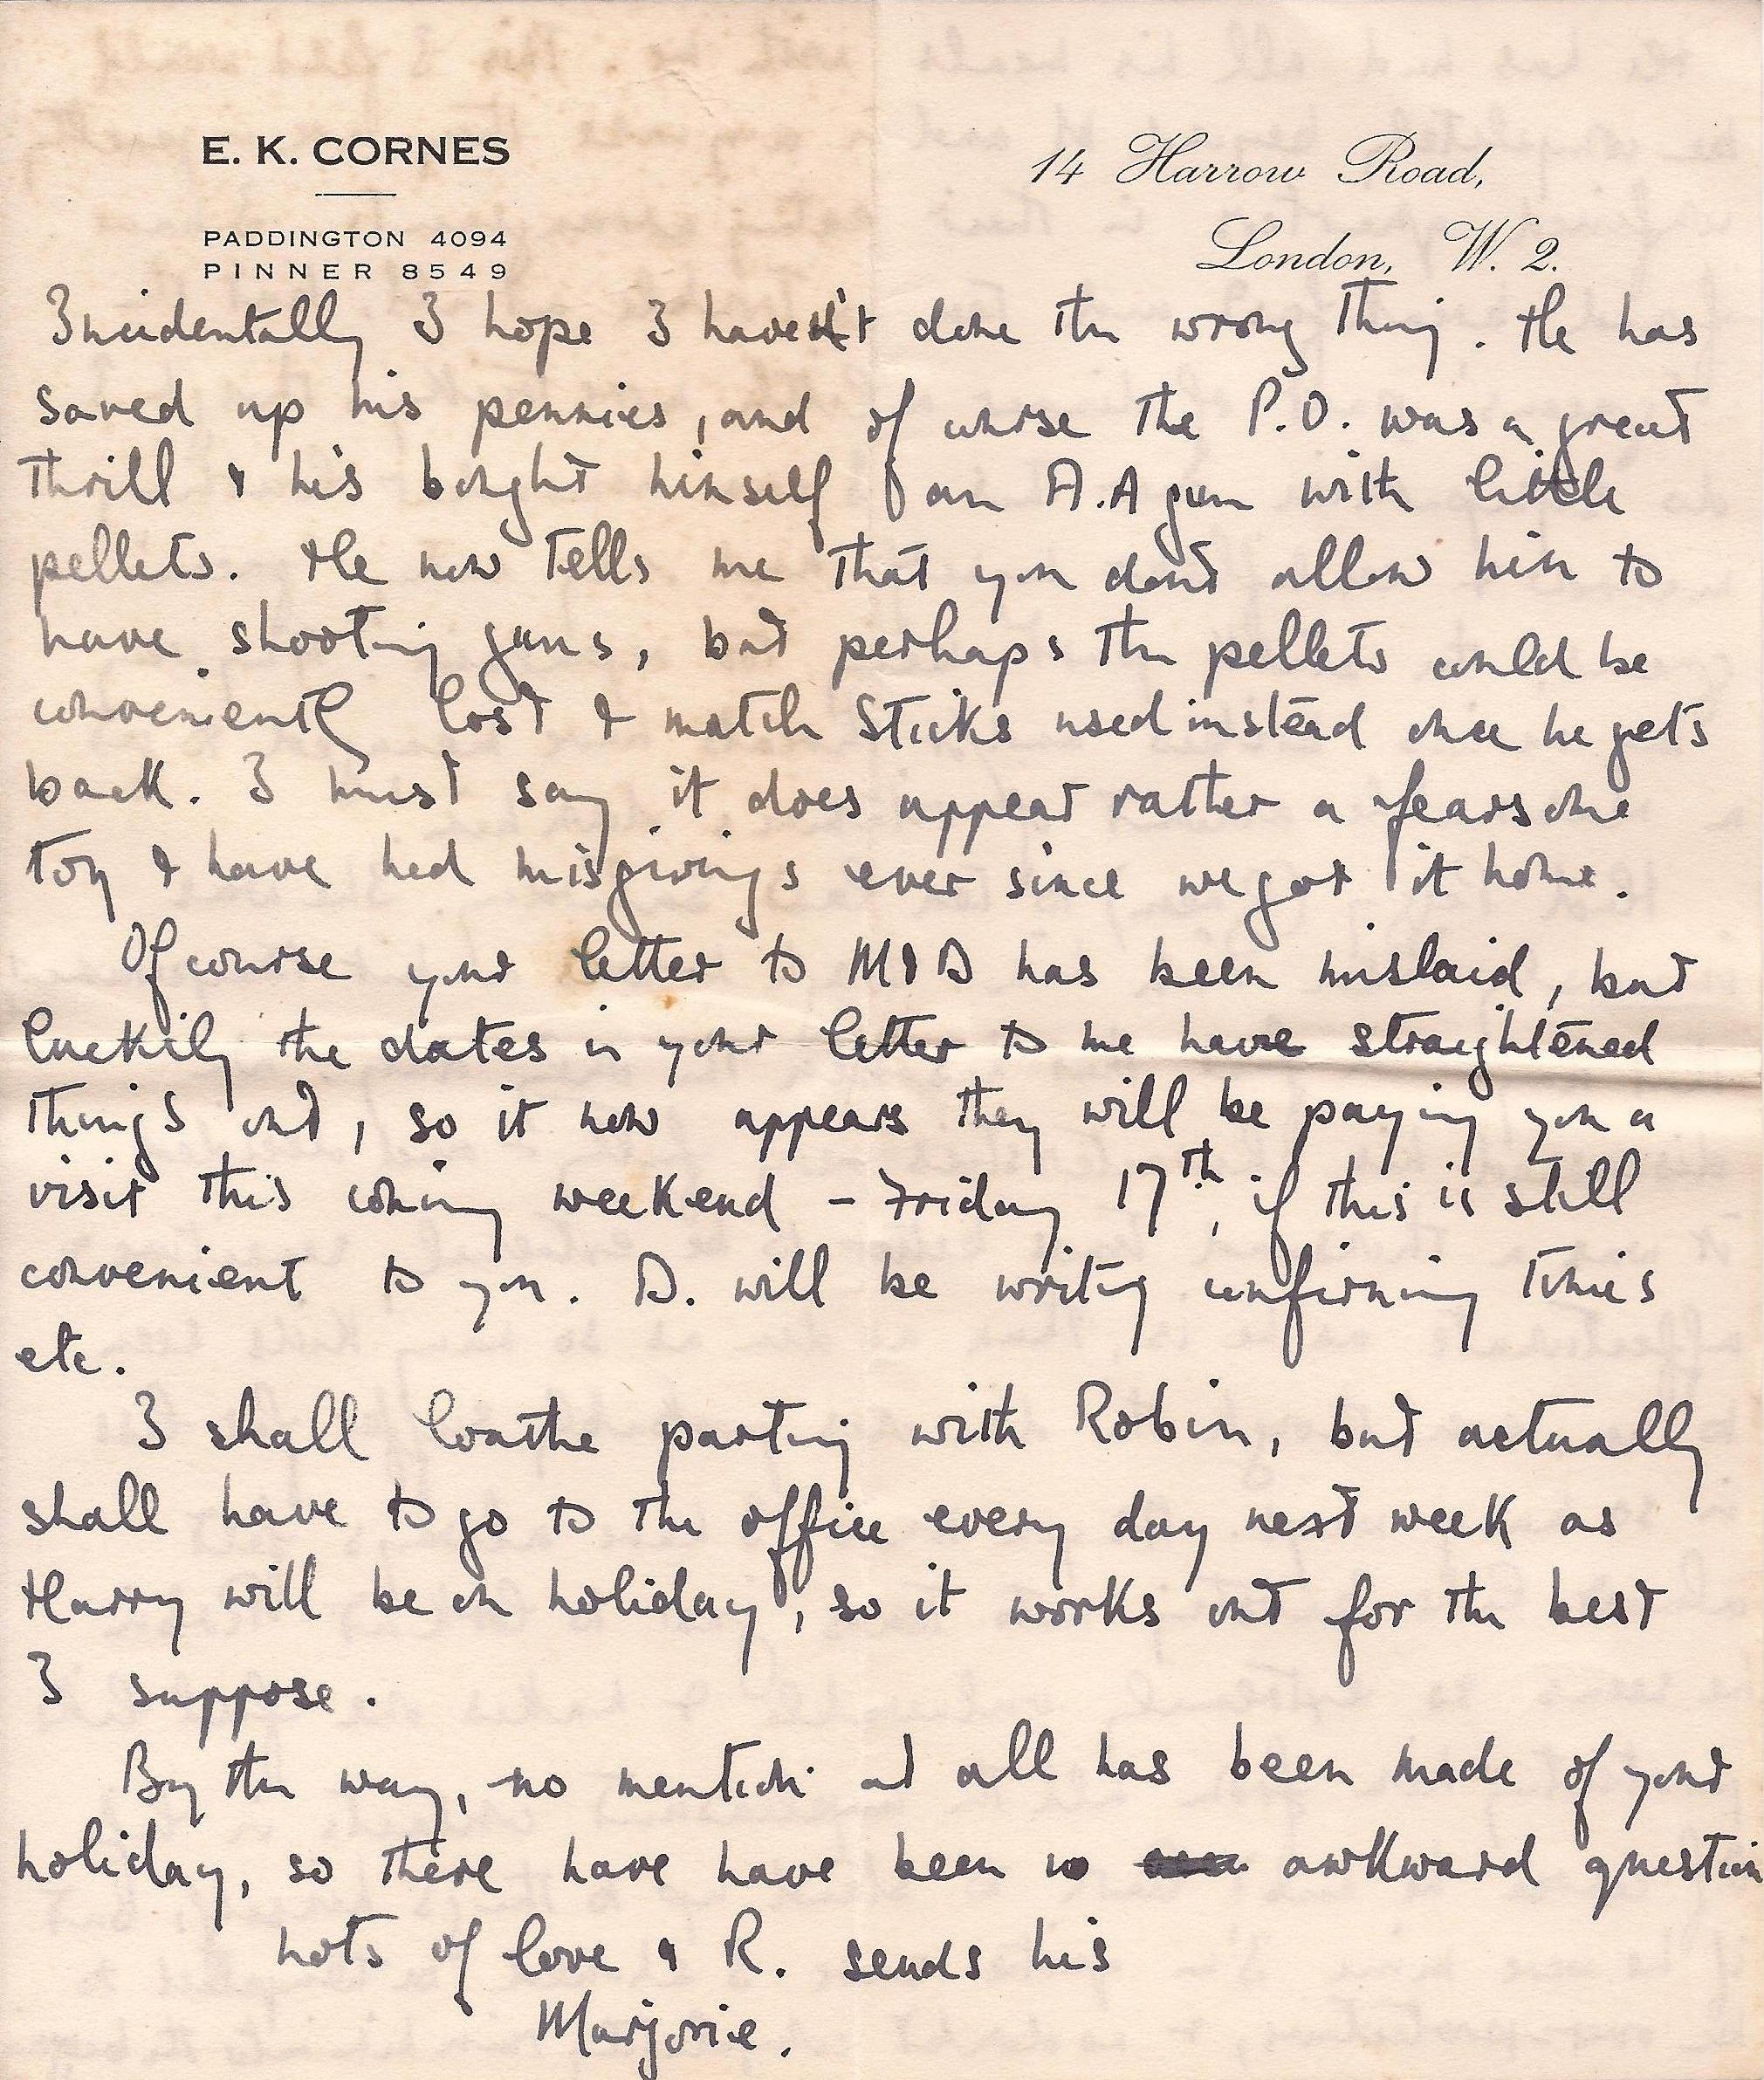 E. K. CORNES
14 Harrow Road,
PADDINGTON 4094
London, W. 2.
PINNER 8549
Incidentally I hope I haven't done the wrong thing. He has
saved up his pennies, and of course the P.O. was a great
thrill & his bought himself an A.A gun with little
pellets. He now tells me that you dont allow him to
have shooting guns, but perhaps the pellets could be
conveniently lost & match sticks used instead once he gets
back. I must say it does appear rather a fearsome
toy & have had misgivings ever since we got it home.
Of course your letter to M & D has been mislaid, but
luckily the dates in your letter to me have straightened
things out, so it now appears they will be paying you a
visit this coming weekend - Friday 17th, if this is still
convenient to you. D. will be writing confirming times
etc.
I shall loathe parting with Robin, but actually
shall have to go to the office every day next week as
Harry will be on holiday, so it works out for the best
I suppose.
By the way, no mention at all has been made of your
holiday, so there have have been no awkward question
Lots of love & R. sends his
Marjorie.